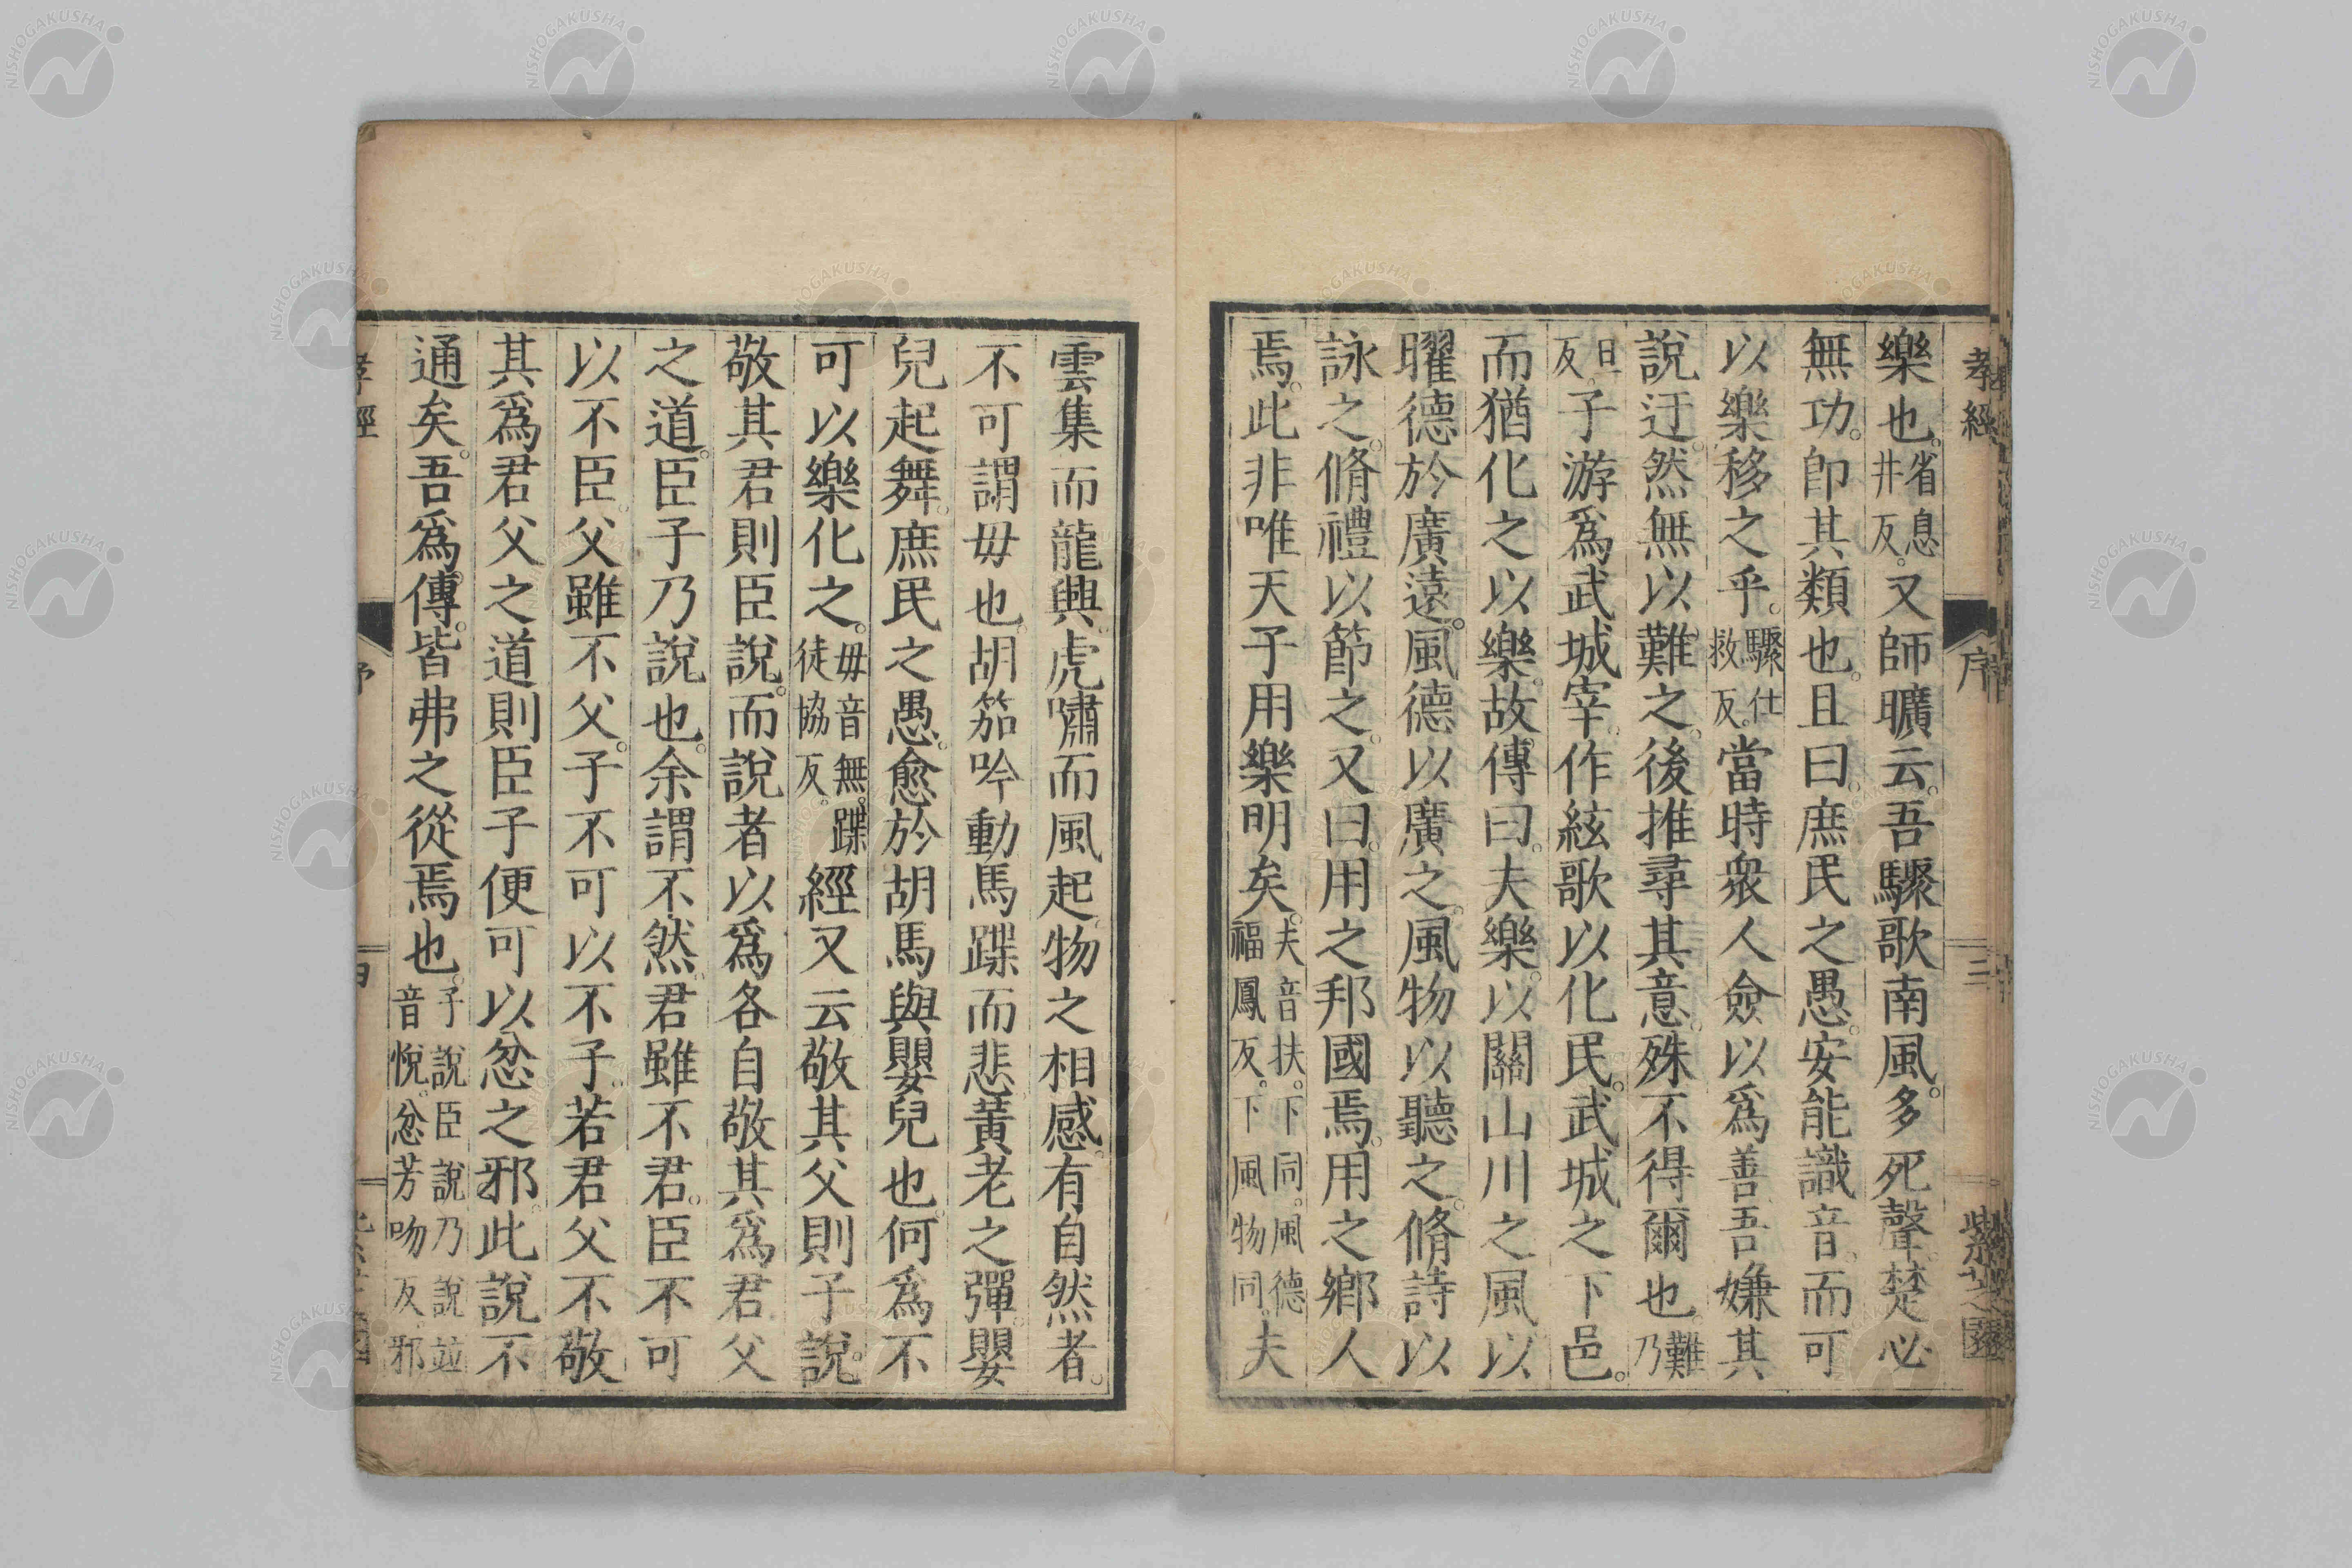 孝經 序 三 紫芝園
樂也。省息井反。又師曠云。吾驟歌南風。多死聲。楚必
無功。卽其類也。且曰。庶民之愚。安能識音。而可
以樂移之乎。驟仕救反。當時衆人僉以爲善。吾嫌其
說迂。然無以難之。後推尋其意。殊不得爾也。難乃
旦反。子游爲武城宰。作絃歌以化民。武城之下邑。
而猶化之以樂。故傳曰。夫樂。以關山川之風。以
曜德於廣遠。風德以廣之。風物以聽之。脩詩以
詠之。脩禮以節之。又曰。用之邦國焉。用之鄉人
焉。此非唯天子用樂明矣。夫音扶。下同。風德福鳳反。下風物同。夫
雲集而龍興。虎嘯而風起。物之相感。有自然者。
不可謂毋也。胡笳吟動。馬蹀而悲。黃老之彈。嬰
兒起舞。庶民之愚。愈於胡馬與嬰兒也。何爲不
可以樂化之。毋音無。蹀徒協反。經又云敬其父則子說。
敬其君則臣說。而說者以爲各自敬其爲君父
之道。臣子乃說也。余謂不然。君雖不君。臣不可
以不臣。父雖不父。子不可以不子。若君父不敬
其爲君父之道。則臣子便可以忿之邪。此說不
通矣。吾爲傳。皆弗之從焉也。子說臣說乃說竝音悅。忿芳吻反。邪
孝經